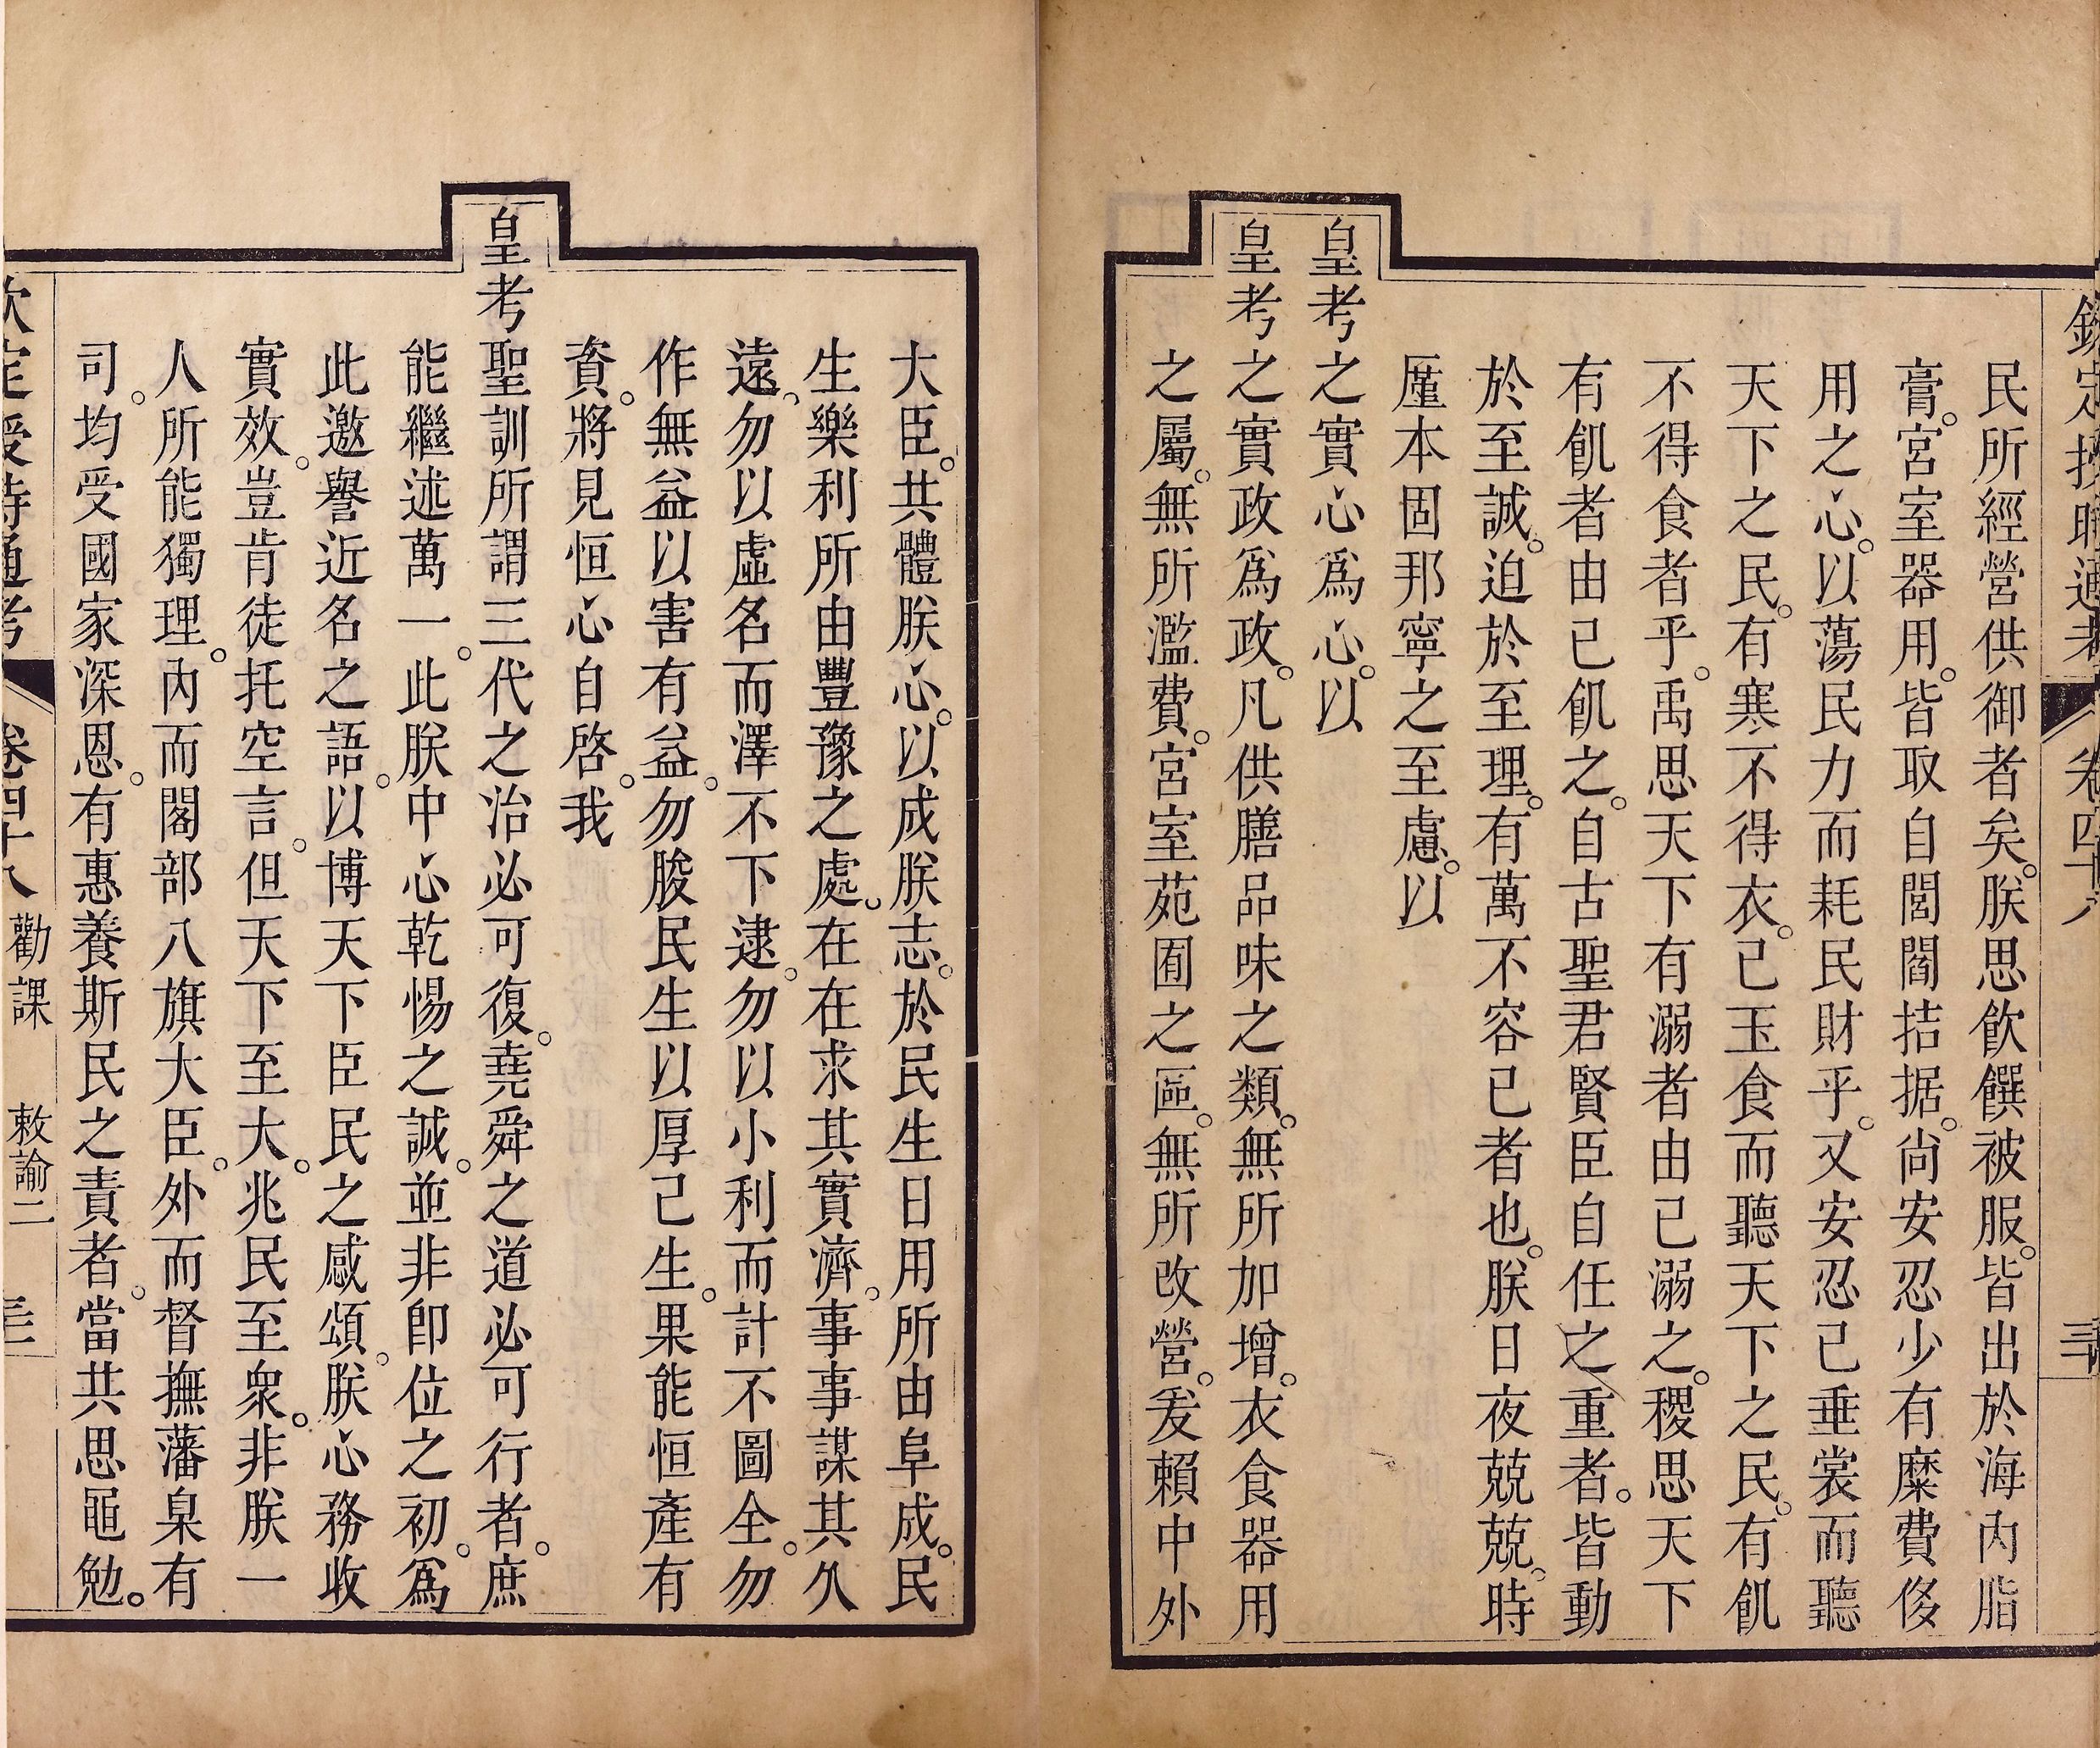 欽定授時通考 卷四十八 三十
民所經營供御者矣。朕思飲饌被服。皆出於海內脂
膏。宮室器用。皆取自閭閻拮据。尙安忍少有糜費侈
用之心。以蕩民力而耗民財乎。又安忍己垂裳而聽
天下之民。有寒不得衣。己玉食而聽天下之民。有飢
不得食者乎。禹思天下有溺者由己溺之。稷思天下
有飢者由己飢之。自古聖君賢臣自任之重者。皆動
於至誠。迫於至理。有萬不容已者也。朕日夜兢兢。時
厪本固邦寧之至慮。以
皇考之實心爲心。以
皇考之實政爲政。凡供膳品味之類。無所加增。衣食器用
之屬。無所濫費。宮室苑囿之區。無所改營。爰賴中外
大臣。共體朕心。以成朕志。於民生日用所由阜成。民
生樂利所由豐豫之處。在在求其實濟。事事謀其久
遠。勿以虛名而澤不下逮。勿以小利而計不圖全。勿
作無益以害有益。勿朘民生以厚己生。果能恒產有
資。將見恒心自啓。我
皇考聖訓所謂三代之治必可復。堯舜之道必可行者。庶
能繼述萬一。此朕中心乾惕之誠。並非卽位之初。爲
此邀譽近名之語。以博天下臣民之感頌。朕心務收
實效。豈肯徒托空言。但天下至大。兆民至衆。非朕一
人所能獨理。內而閣部八旗大臣。外而督撫藩臬有
司。均受國家深恩。有惠養斯民之責者。當共思黽勉。
欽定授時通考 卷四十八 勸課 敕諭二 三十一